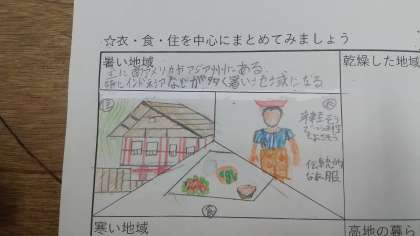 ☆衣・食・住を中心にまとめてみましょう
暑い地域
乾燥した地域
主に南アメリカやアジア州にある、
インドネシアなどが多く暑い地域になる
住
衣
伝統的
な服
食
寒い地域
高地の暮ら